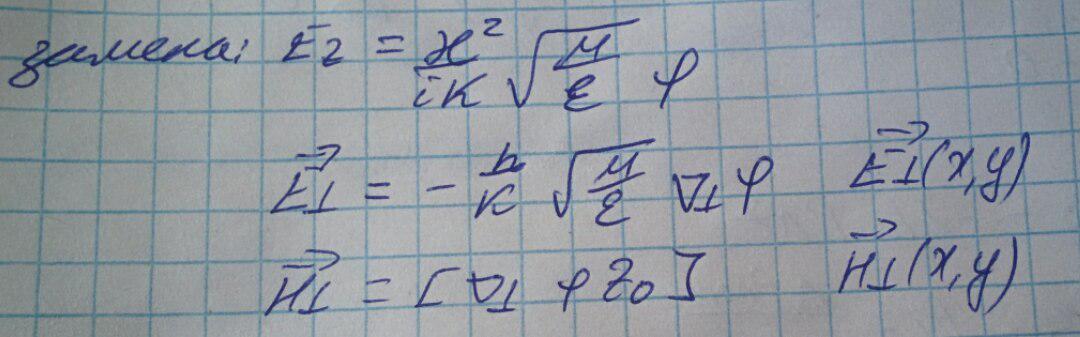 замена: E_z = \frac{ϰ^2}{iK} \sqrt{\frac{M}{ε}} φ
\vec{E}⊥ = -\frac{h}{K} \sqrt{\frac{M}{ε}} ∇⊥φ \vec{E}⊥(x,y)
\vec{H}⊥ = [∇⊥ φ z_0] \vec{H}⊥(x,y)